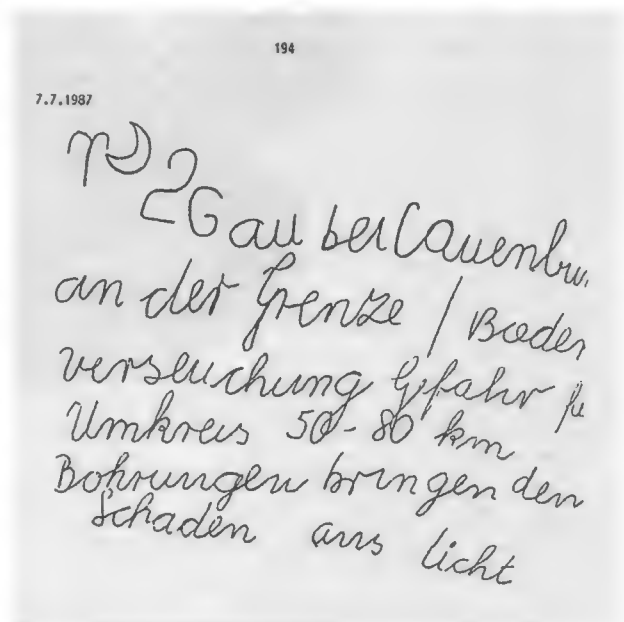 194
7.7.1987
2 Gau bei Lauenbu
an der Grenze / Boden
verseuchung Gefahr fü
Umkreis 50-80 km
Bohrungen bringen den
Schaden ans Licht